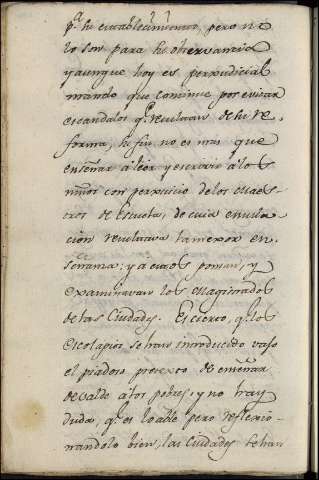 pª su establecimiento, pero no
lo son para su observancia
y aunque hoy es perjudicial
mando que continue por evitar
escandalos qᵉ resultan de su re-
forma, su fin no es mas que
enseñar à leer y escrivir à los
niños con perjuicio de los Maes-
tros de Escuela, de cuia emula
cion resultava la mexor en-
señanza; y à estos ponian, y
examinavan los Magistrados
de las Ciudades. Es cierto, q. los
Escolapios se han introducido vajo
el piadoso pretexto de enseñar
de valde a los pobres, y no hay
duda, qᵉ es loable pero reflexio-
nandolo bien, las Ciudades se han